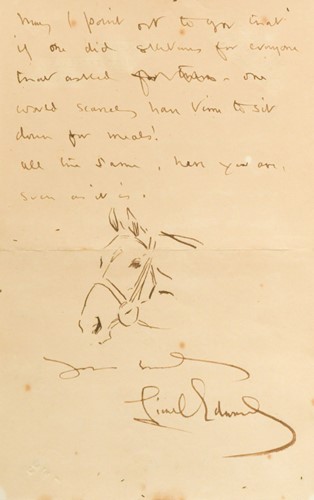 May I point out to you that
if one did sketches for everyone
that asked for them - one
would scarcely have time to sit
down for meals!
all the same, here you are,
such as it is.
Yours
Lionel Edwards